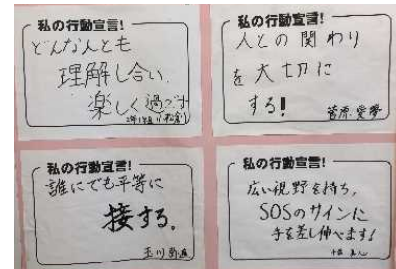 私の行動宣言!
どんな人とも
理解し合い、
楽しく過ごす
私の行動宣言!
人との関わり
を大切に
する!
菅原愛夢
私の行動宣言!
誰にでも平等に
接する。
玉川
私の行動宣言!
広い視野を持ち、
SOSのサインに
手を差し伸べます!